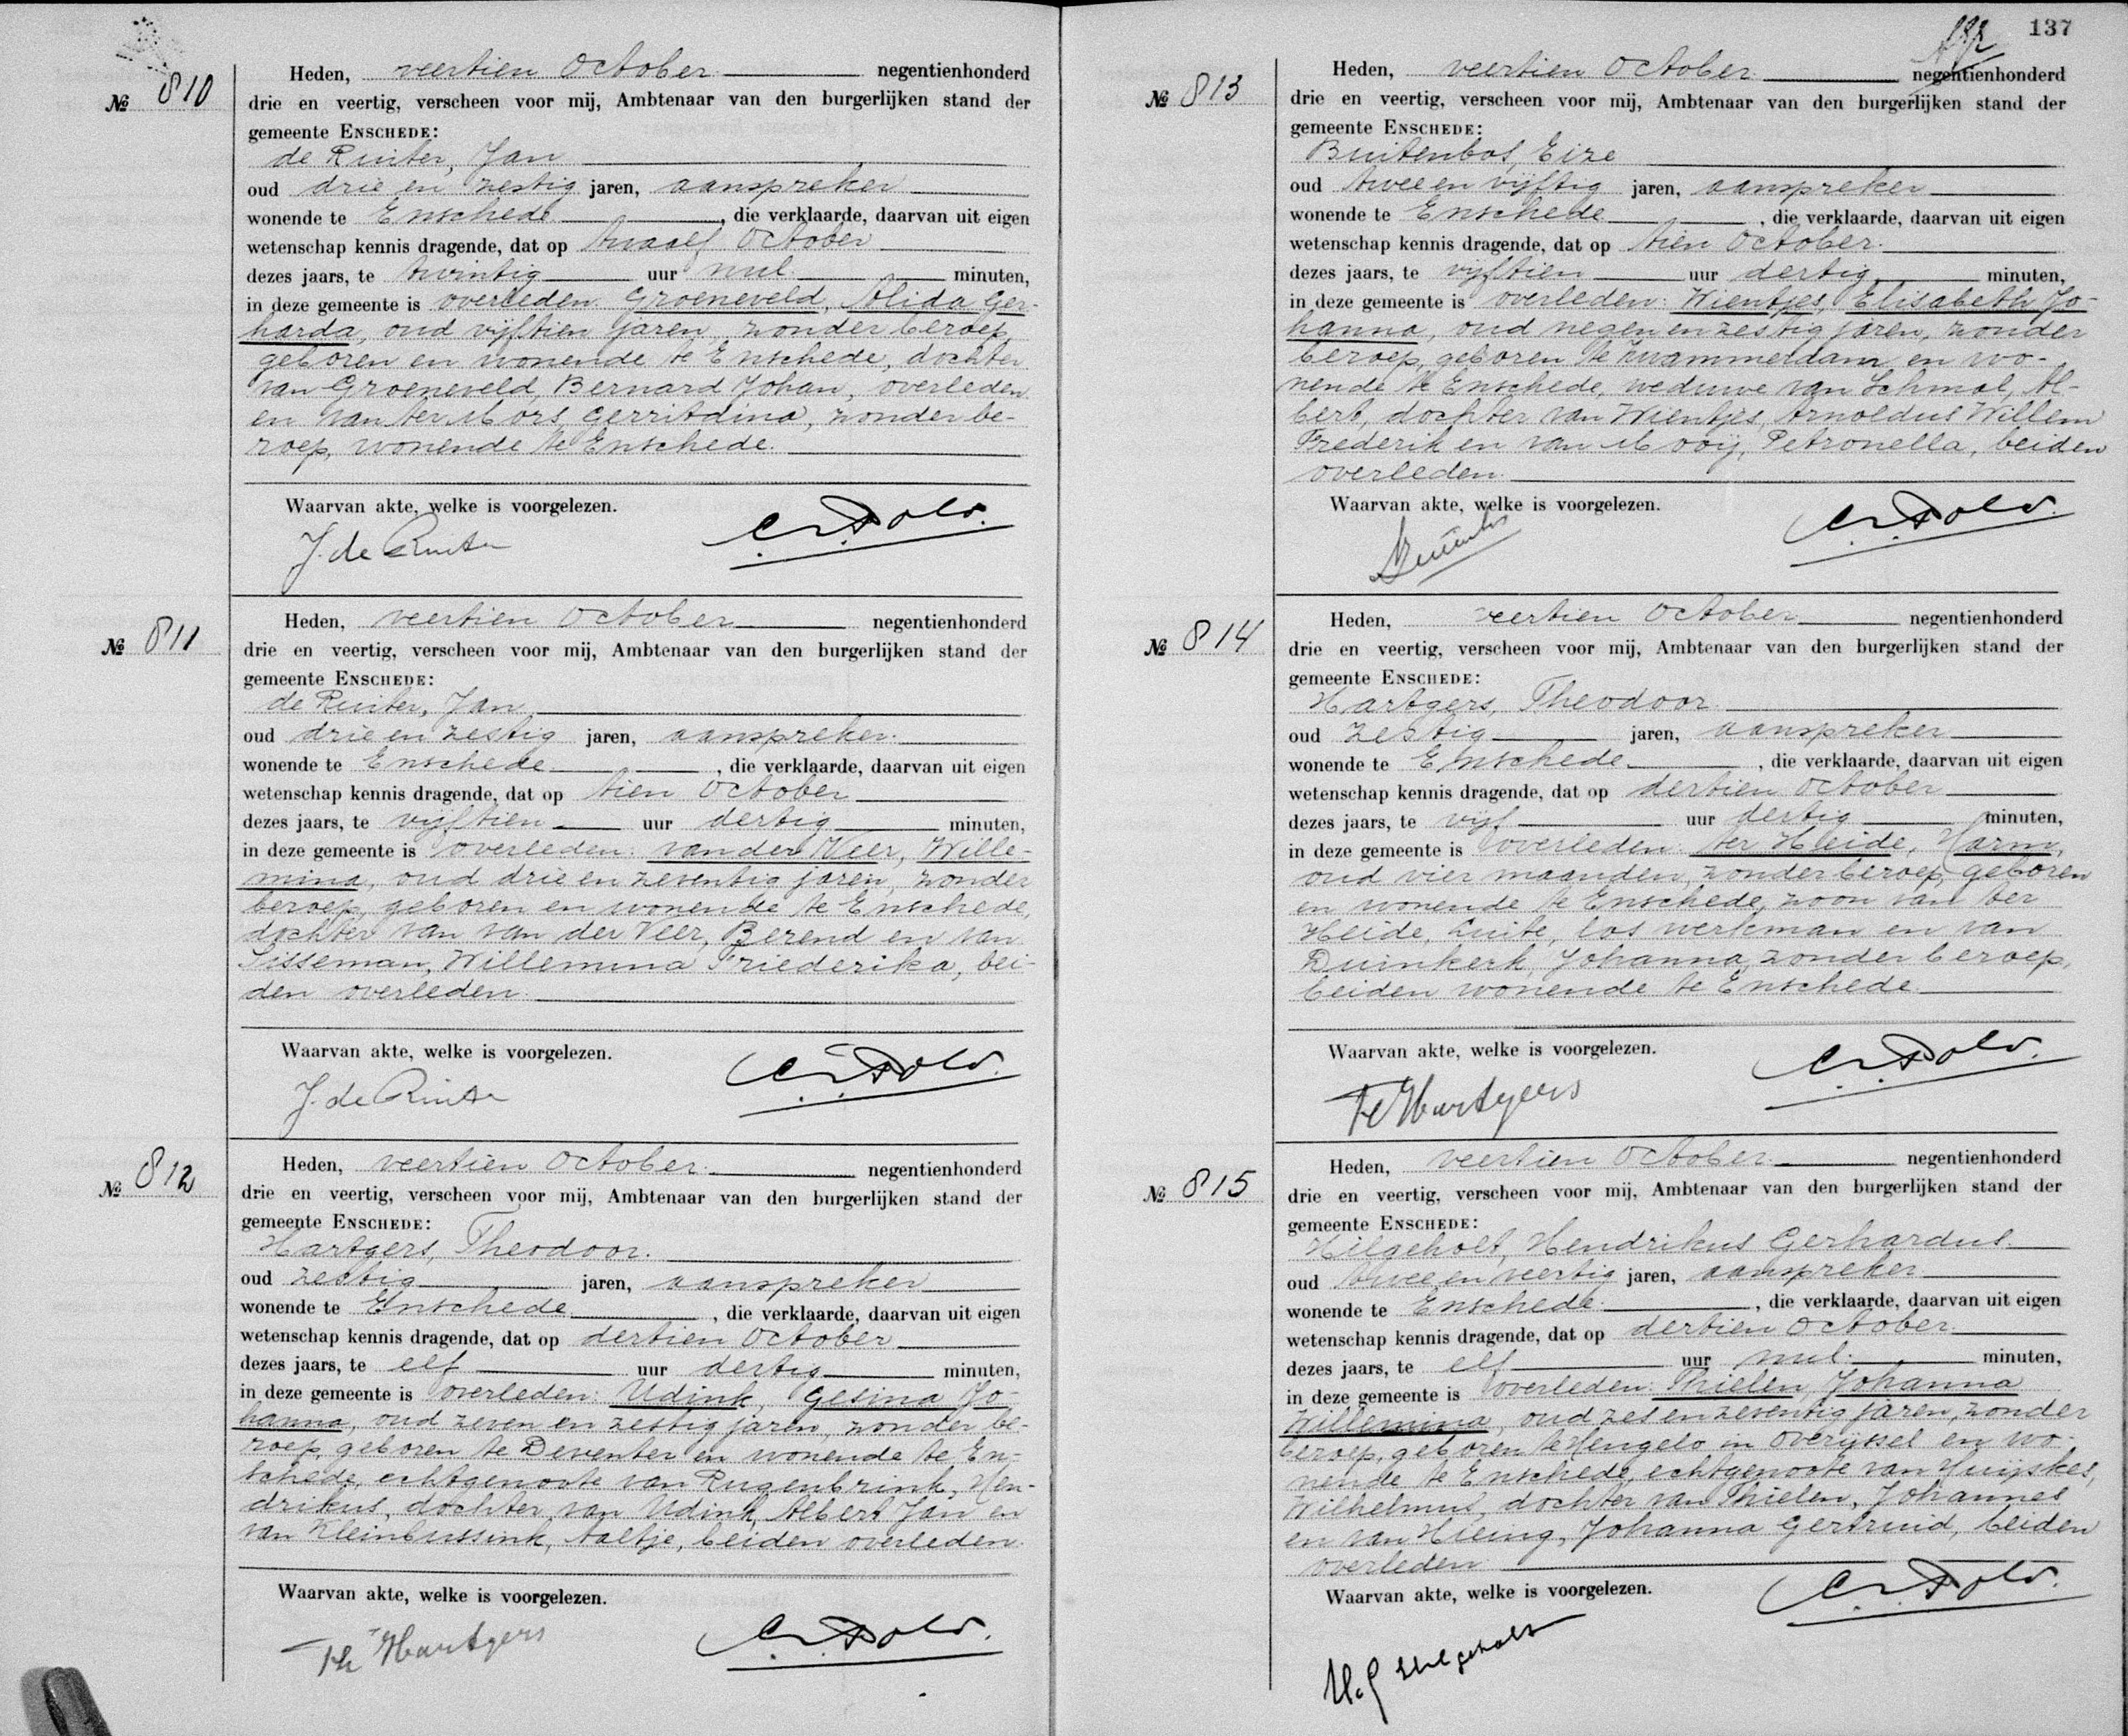 № 810
Heden, veertien October negentienhonderd
drie en veertig, verscheen voor mij, Ambtenaar van den burgerlijken stand der
gemeente ENSCHEDE:
de Ruiter, Jan
oud drie en zestig jaren, aanspreker
wonende te Enschede, die verklaarde, daarvan uit eigen
wetenschap kennis dragende, dat op twaalf October
dezes jaars, te twintig uur nul minuten,
in deze gemeente is overleden: Groeneveld, Alida Ger-
harda, oud vijftien jaren, zonder beroep,
geboren en wonende te Enschede, dochter
van Groeneveld, Bernard Johan, overleden
en van ter Mors, Gerritdina, zonder be-
roep, wonende te Enschede.
Waarvan akte, welke is voorgelezen.
J. de Ruiter
№ 811
Heden, veertien October negentienhonderd
drie en veertig, verscheen voor mij, Ambtenaar van den burgerlijken stand der
gemeente ENSCHEDE:
de Ruiter, Jan
oud drie en zestig jaren, aanspreker.
wonende te Enschede, die verklaarde, daarvan uit eigen
wetenschap kennis dragende, dat op tien October
dezes jaars, te vijftien uur dertig minuten,
in deze gemeente is overleden: van der Veer, Wille-
mina, oud drie en zeventig jaren, zonder
beroep, geboren en wonende te Enschede,
dochter van van der Veer, Berend en van
Tisseman, Willemina Friederika, bei-
den overleden.
Waarvan akte, welke is voorgelezen.
J. de Ruiter
№ 812
Heden, veertien October negentienhonderd
drie en veertig, verscheen voor mij, Ambtenaar van den burgerlijken stand der
gemeente ENSCHEDE:
Hartgers, Theodoor.
oud zestig jaren, aanspreker
wonende te Enschede, die verklaarde, daarvan uit eigen
wetenschap kennis dragende, dat op dertien October
dezes jaars, te elf uur dertig minuten,
in deze gemeente is overleden: Udink, Gesina Jo-
hanna, oud zeven en zestig jaren, zonder be-
roep, geboren te Deventer en wonende te En-
schede, echtgenoote van Rugenbrink, Hen-
drikus, dochter van Udink, Albert Jan en
van Kleinbussink, Aaltje, beiden overleden.
Waarvan akte, welke is voorgelezen.
Th Hartgers
137
№ 813
Heden, veertien October negentienhonderd
drie en veertig, verscheen voor mij, Ambtenaar van den burgerlijken stand der
gemeente ENSCHEDE:
Buitenbos, Eize
oud twee en vijftig jaren, aanspreker
wonende te Enschede, die verklaarde, daarvan uit eigen
wetenschap kennis dragende, dat op tien October.
dezes jaars, te vijftien uur dertig minuten,
in deze gemeente is overleden: Wientjes, Elisabeth Jo-
hanna, oud negen en zestig jaren, zonder
beroep, geboren te Zwammerdam en wo-
nende te Enschede, weduwe van Schmal, Al-
bert, dochter van Wientjes, Arnoldus Willem
Frederik en van Mooij, Petronella, beiden
overleden.
Waarvan akte, welke is voorgelezen.
№ 814
Heden, veertien October negentienhonderd
drie en veertig, verscheen voor mij, Ambtenaar van den burgerlijken stand der
gemeente ENSCHEDE:
Hartgers, Theodoor.
oud zestig jaren, aanspreker
wonende te Enschede, die verklaarde, daarvan uit eigen
wetenschap kennis dragende, dat op dertien October
dezes jaars, te vijf uur dertig minuten,
in deze gemeente is overleden: ter Heide, Harm,
oud vier maanden, zonder beroep, geboren
en wonende te Enschede, zoon van ter
Heide, Luite, los werkman en van
Duinkerk, Johanna, zonder beroep,
beiden wonende te Enschede.
Waarvan akte, welke is voorgelezen.
Th Hartgers
№ 815
Heden, veertien October. negentienhonderd
drie en veertig, verscheen voor mij, Ambtenaar van den burgerlijken stand der
gemeente ENSCHEDE:
Hilgeholt, Hendrikus Gerhardus.
oud twee en veertig jaren, aanspreker
wonende te Enschede, die verklaarde, daarvan uit eigen
wetenschap kennis dragende, dat op dertien October.
dezes jaars, te elf uur nul minuten,
in deze gemeente is overleden: Thielen, Johanna
Willemina, oud zes en zeventig jaren, zonder
beroep, geboren te Hengelo in Overijssel en wo-
nende te Enschede, echtgenoote van Huijskes,
Wilhelmus, dochter van Thielen, Johannes
en van Hieing, Johanna Gertruid, beiden
overleden
Waarvan akte, welke is voorgelezen.
H.G Hilgeholt